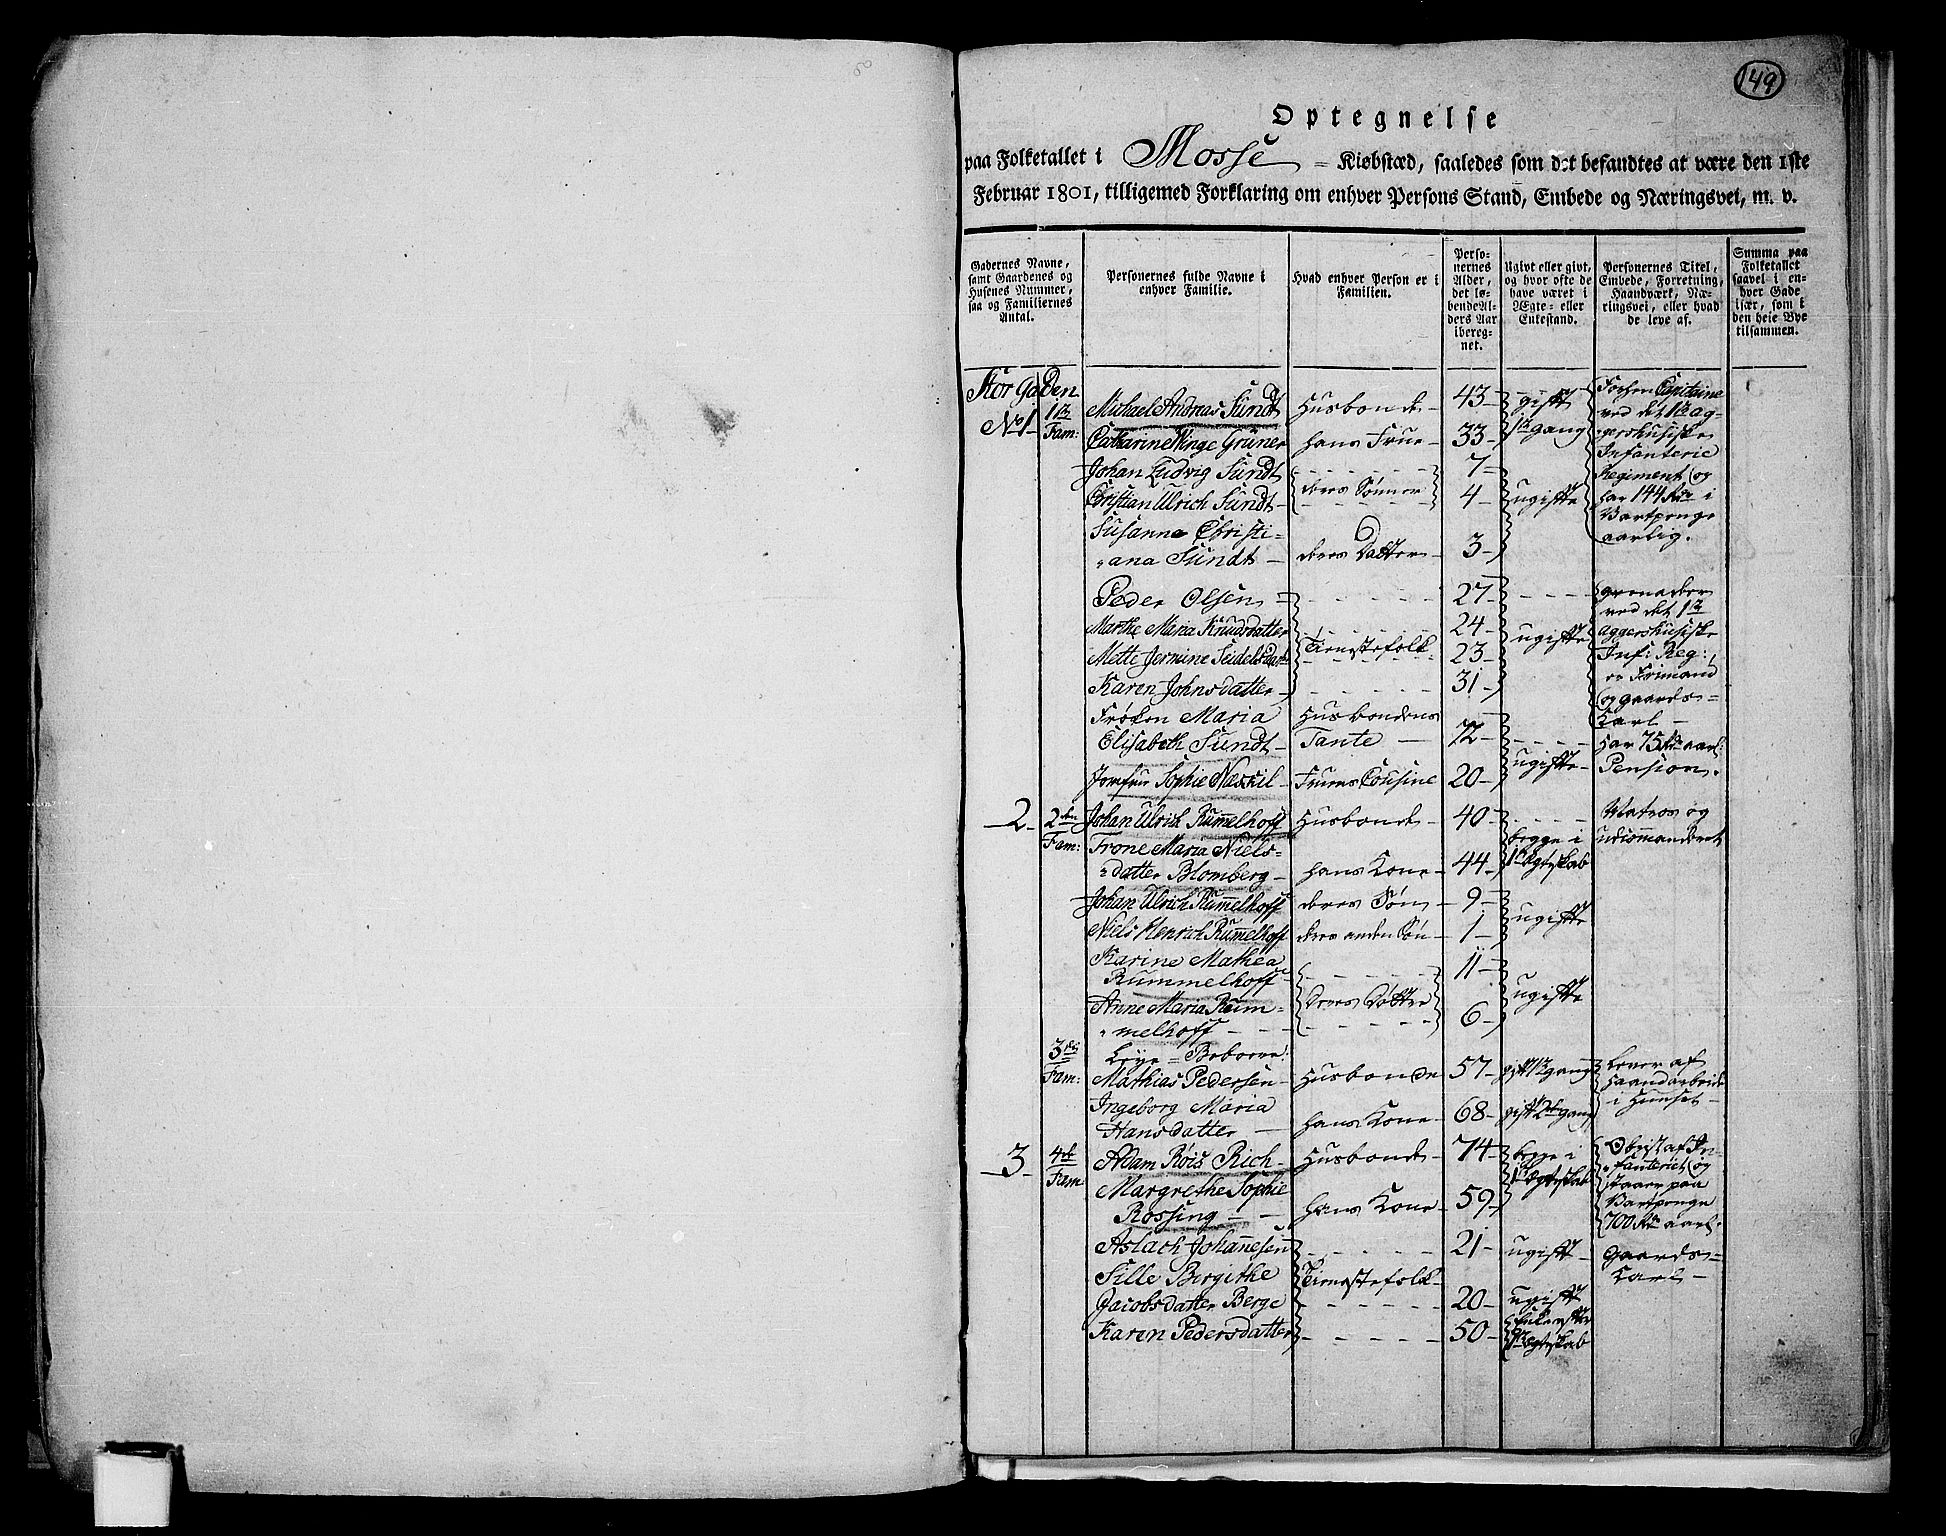 149
Optegnelse
paa Folketallet i Mosse Kiøbstæd, saaledes som det befandtes at være den 1ste
Februar 1801, tilligemed Forklaring om enhver Persons Stand, Embede og Næringsvei, m. v.
Gadernes Navne,
samt Gaardenes og
Husenes Nummer,
saa og Familiernes
Antal.
Personernes fulde Navne i
enhver Familie.
Hvad enhver Person er i
Familien.
Perso-
nernes
Alder,
det lø-
bende Al-
ders Aar
iberegnet.
Ugivt eller givt,
og hvor ofte de
have været i
Ægte- eller
Enkestand.
Personernes Titel,
Embede, Forretning,
Haandværk, Næ-
ringsvei, eller hvad
de leve af.
Summa paa
Folketallet
saavel i en-
hver Gade
især, som i
den heie Bye
tilsammen.
Storgaden
No 1 1te Fam: Michael Andreas Sundt Husbonde 43 gift 1te gang
Capitaine
ved det 1te ag-
gershusiske
Infanterie
Regiment, og
har 144 Rdr i
Vartpenge
aarlig.
Catharine Winge Grüner hans Frue 33
Johan Ludvig Sundt 7
deres Sønner ugifte
Christian Ulrich Sundt 4
Susanne Christi-
ana Sundt deres Datter 3
Peder Olsen 27 grenadeer
ved det 1te
aggershusiske
Inf: Reg:,
er Frimand
og gaards-
Karl
Marthe Maria Knudsdatter 24
Tienestefolk ugifte
Mette Jermine Seidelsdatt 23
Karen Johnsdatter 31
Frøken Maria Husbondens
Elisabeth Sundt Tante 72 har 75 Rdr aarl:
Pension.
ugifte
Jomfrue Sophie Neskil Fruens Cousine 20
2 2den Fam: Johan Ulrich Rummelhoff Husbonde 40 begge i 1te Ægteskab Matros og
udcommanderet
Frone Maria Niels-
datter Blomberg hans Kone 44
Johan Ulrich Rummelhoff deres Søn 9 ugifte
Niels Henrich Rummelhoff deres anden Søn 1
Karine Mathea
Rummelhoff 11
deres Døttre ugifte
Anne Maria Rum-
melhoff 6
3die Fam: Leye-Beboere:
Mathias Pedersen Husbonde 57 gift 1te gang lever af
Haandarbeide
i Huuset
Ingeborg Maria
Hansdatter hans Kone 68 gift 2den gang
3 4de Fam Adam Röis Rich Husbonde 74 begge i
1te Ægteskab
Obrist af In-
fanteriet og
staaer paa
Vartpenge
700 Rdr aarl:
Margrethe Sophie
Rossing hans Kone 59
Aslach Johannesen 21 ugift Gaards-
Karl
Sille Bergithe
Tienestefolk
Jacobsdatter Berge 20 ugift
Karen Pedersdatter 50 Enke efter
1te Ægteskab